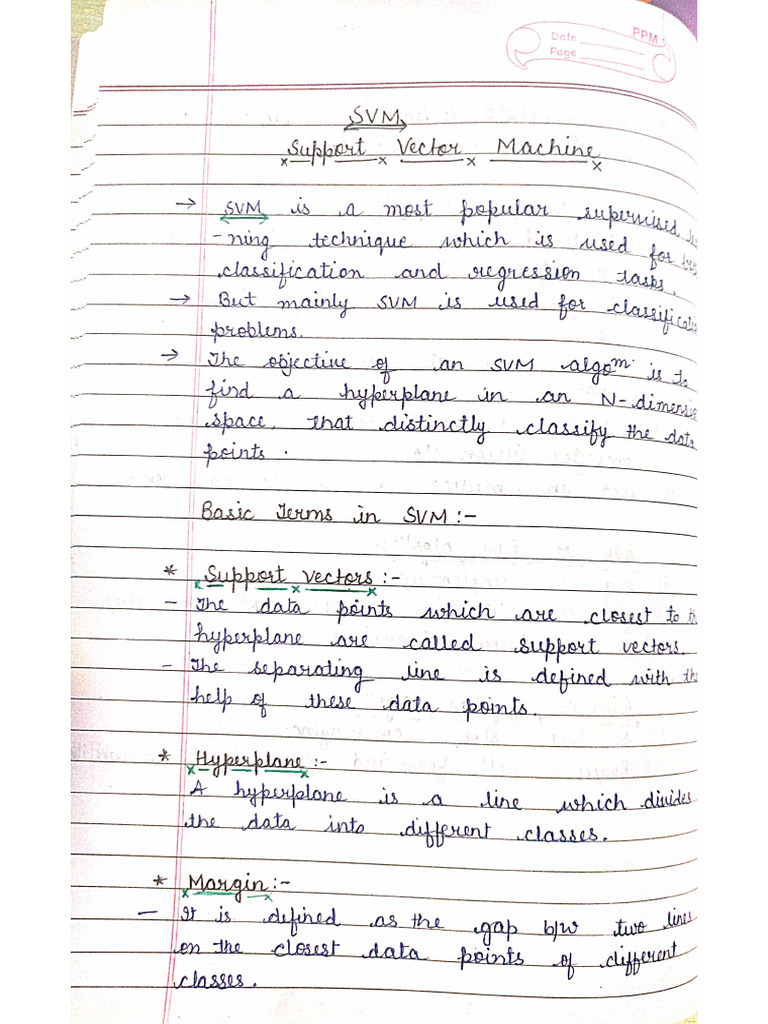 Date
Page
PPM
SVM
Support Vector Machine
→ SVM is a most popular supervised
-ning technique which is used for
classification and regression tasks.
→ But mainly SVM is used for classificatio
problems.
→ The objective of an SVM algom is to
find a hyperplane in an N-dimensio
space that distinctly classify the data
points.
Basic Terms in SVM:-
* Support vectors:-
- The data points which are closest to
hyperplane are called support vectors.
- The separating line is defined with the
help of these data points.
* Hyperplane:-
A hyperplane is a line which divides
the data into different classes.
* Margin:-
- It is defined as the gap b/w two lines
on the closest data points of different
classes.